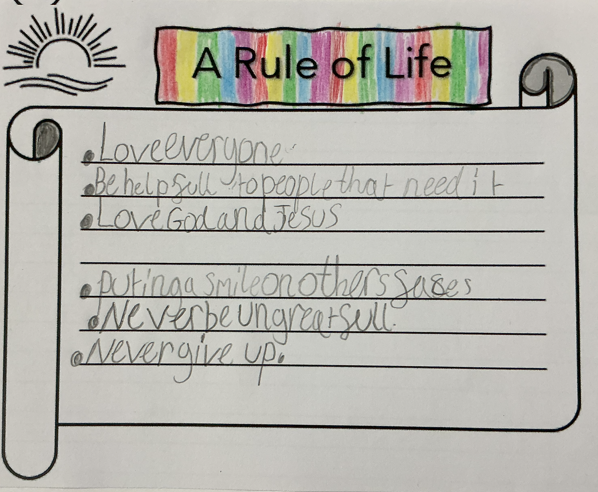 A Rule of Life
• Love everyone
• Be helpfull to people that need it
• Love God and Jesus
• puting a smile on others fases
• Never be ungreatfull
• Never give up.